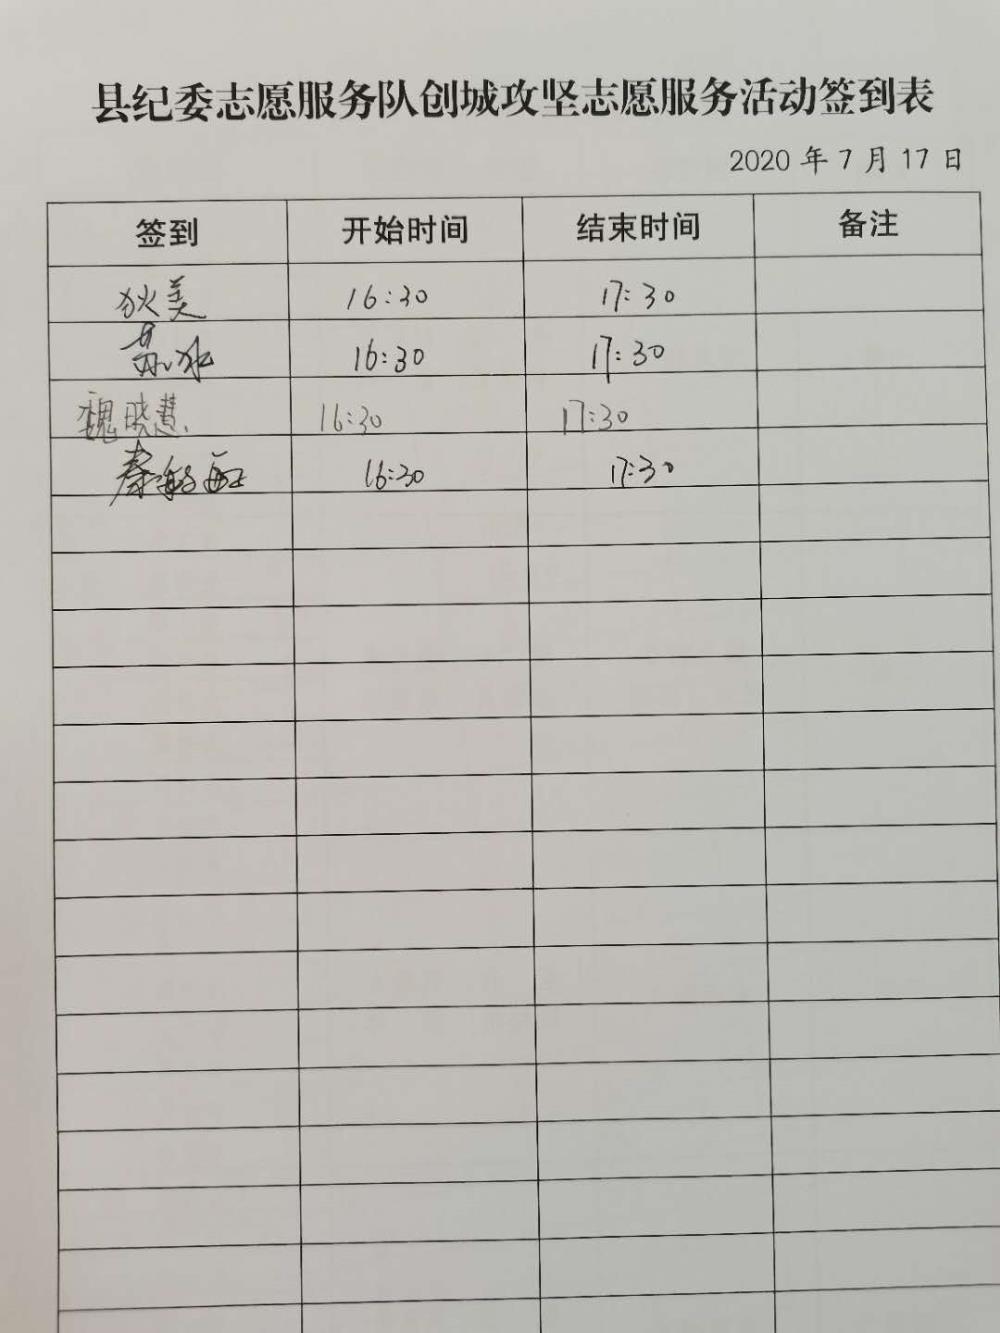 县纪委志愿服务队创城攻坚志愿服务活动签到表
2020 年 7 月 17 日
签到 开始时间 结束时间 备注
狄美 16:30 17:30
16:30 17:30
魏晓慧 16:30 17:30
秦 16:30 17:30